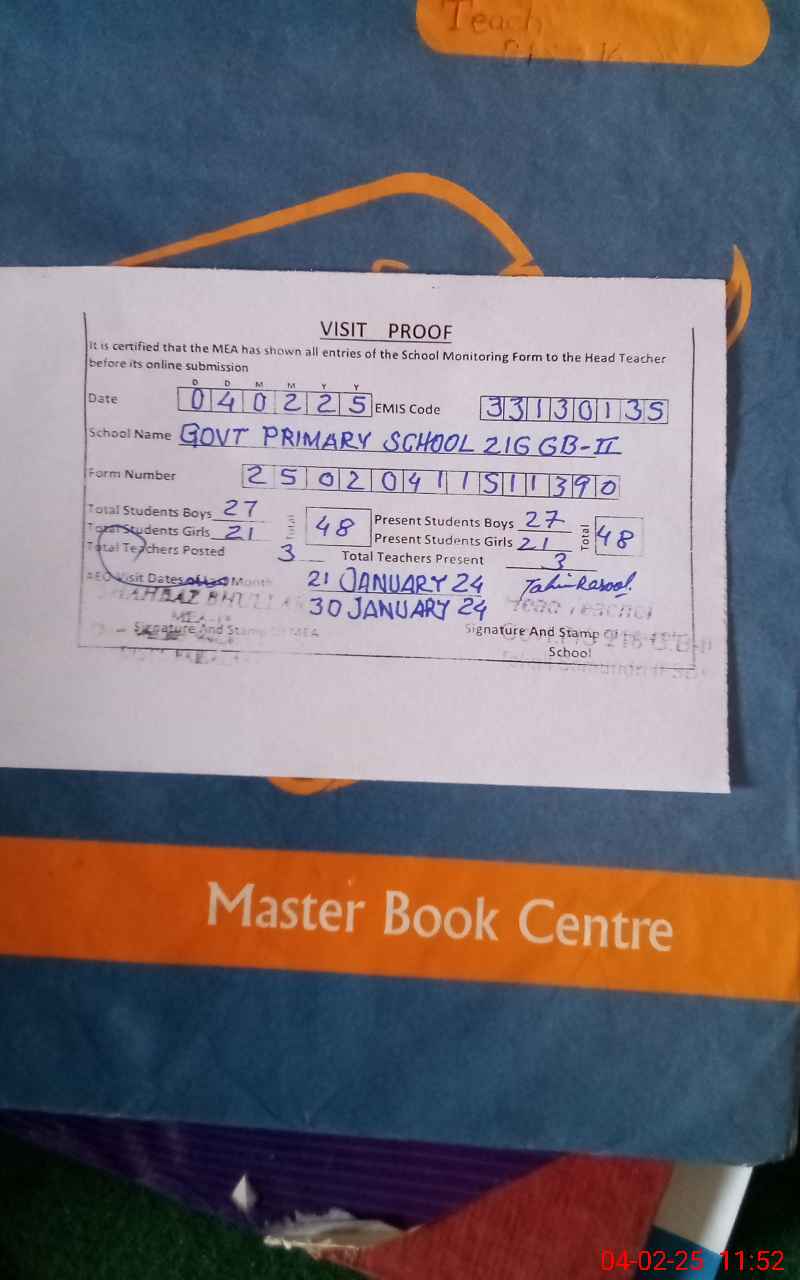 Teach
VISIT PROOF
It is certified that the MEA has shown all entries of the School Monitoring Form to the Head Teacher
before its online submission
D D M M Y Y
Date 040225 EMIS Code 33130135
School Name GOVT PRIMARY SCHOOL 216 GB-II
Form Number 25020411511390
Total Students Boys 27 Total 48 Present Students Boys 27 Total 48
Total Students Girls 21 Present Students Girls 21
Total Teachers Posted 3 Total Teachers Present 3
AEO Visit Dates Month 21 JANUARY 24 Tahir Rasool
SHAHBAZ BHULLAR 30 JANUARY 24 Head Teacher
MEA
Signature And Stamp Of MEA Signature And Stamp Of
School
Master Book Centre
04-02-25 11:52